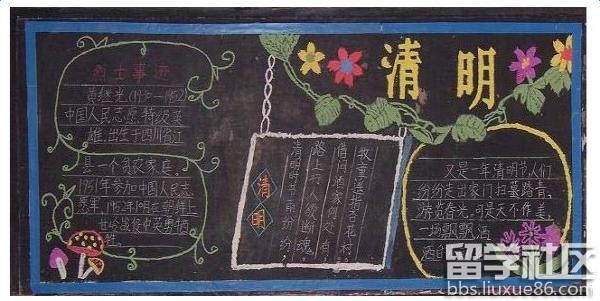 清明
烈士事迹
黄继光(1930—1952)
中国人民志愿 特级英
雄,出生于四川省江
县一个贫农家庭。
1951年参加中国人民志
愿军,1952年 在朝鲜上
甘岭战役中英勇牺
牲
清明
清明时节雨纷纷,
路上行人欲断魂。
借问酒家何处有,
牧童遥指杏花村。
又是一年清明节,人们
纷纷走出家门扫墓踏青,
游览春光。可是天不作美,
一场飘飘洒
留学社区
bbs.liuxue86.com